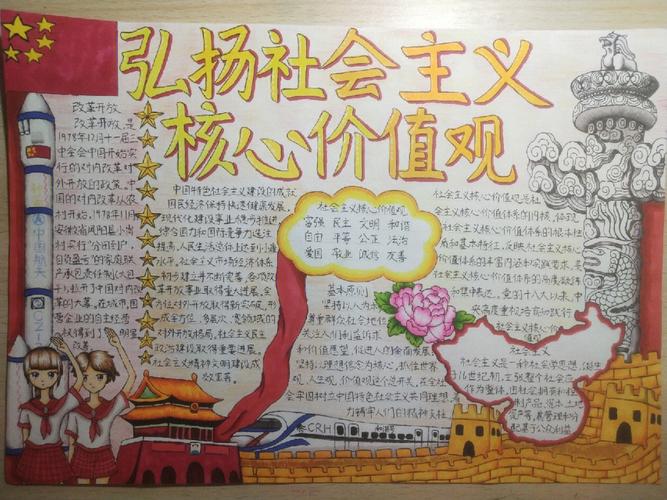 弘扬社会主义
核心价值观
改革开放
改革开放,是
1978年12月十一届三
中全会中国开始实
行的对内改革
对外开放的政策。中
国的对内改革从农
村开始,1978年11月
安徽省凤阳县小岗
村实行"分田到户,
自负盈亏"的家庭联
产承包责任制(大包
干),拉开了中国对内改
革的大幕。在城市,国
营企业的自主经营
权得到了明显
改善。
中国航天
中国特色社会主义建设的成就
国民经济保持快速健康发展。
现代化建设事业顺利推进
综合国力和国际竞争力
提高,人民生活总体上达到小康
水平。社会主义市场经济体系
初步建立并不断完善,各项改
革开放事业取得重大进展。全
方位对外开放取得新突破,形
成全方位、多层次、宽领域的
对外开放格局。社会主义民主
政治建设取得重要进展。
社会主义精神文明建设成
效显著。
社会主义核心价值观
富强 民主 文明 和谐
自由 平等 公正 法治
爱国 敬业 诚信 友善
基本原则
坚持以人为本
尊重群众主体地位
关注人们利益诉求
和价值愿望,促进人的全面发展
坚持以理想信念为核心,抓住世界
观、人生观、价值观这个总开关,在全社
会牢固树立中国特色社会主义共同理想,着
力铸牢人们的精神支柱
社会主义核心价值观是社
会主义核心价值体系的内核,体现
社会主义核心价值体系的根本性
质和基本特征,反映社会主义核心
价值体系的丰富内涵和实践要求,是
社会主义核心价值体系的高度凝练
和集中表达。党的十八大以来,中
央高度重视培育和践行
社会主义核心价值
观
社会主义
社会主义是一种社会学思想,诞生
于16世纪初,主张整个社会应
作为整体,由社会拥有和控
制产品、资本、土地、
资产等,其管理和分
配基于公众利益
CRH 和谐号